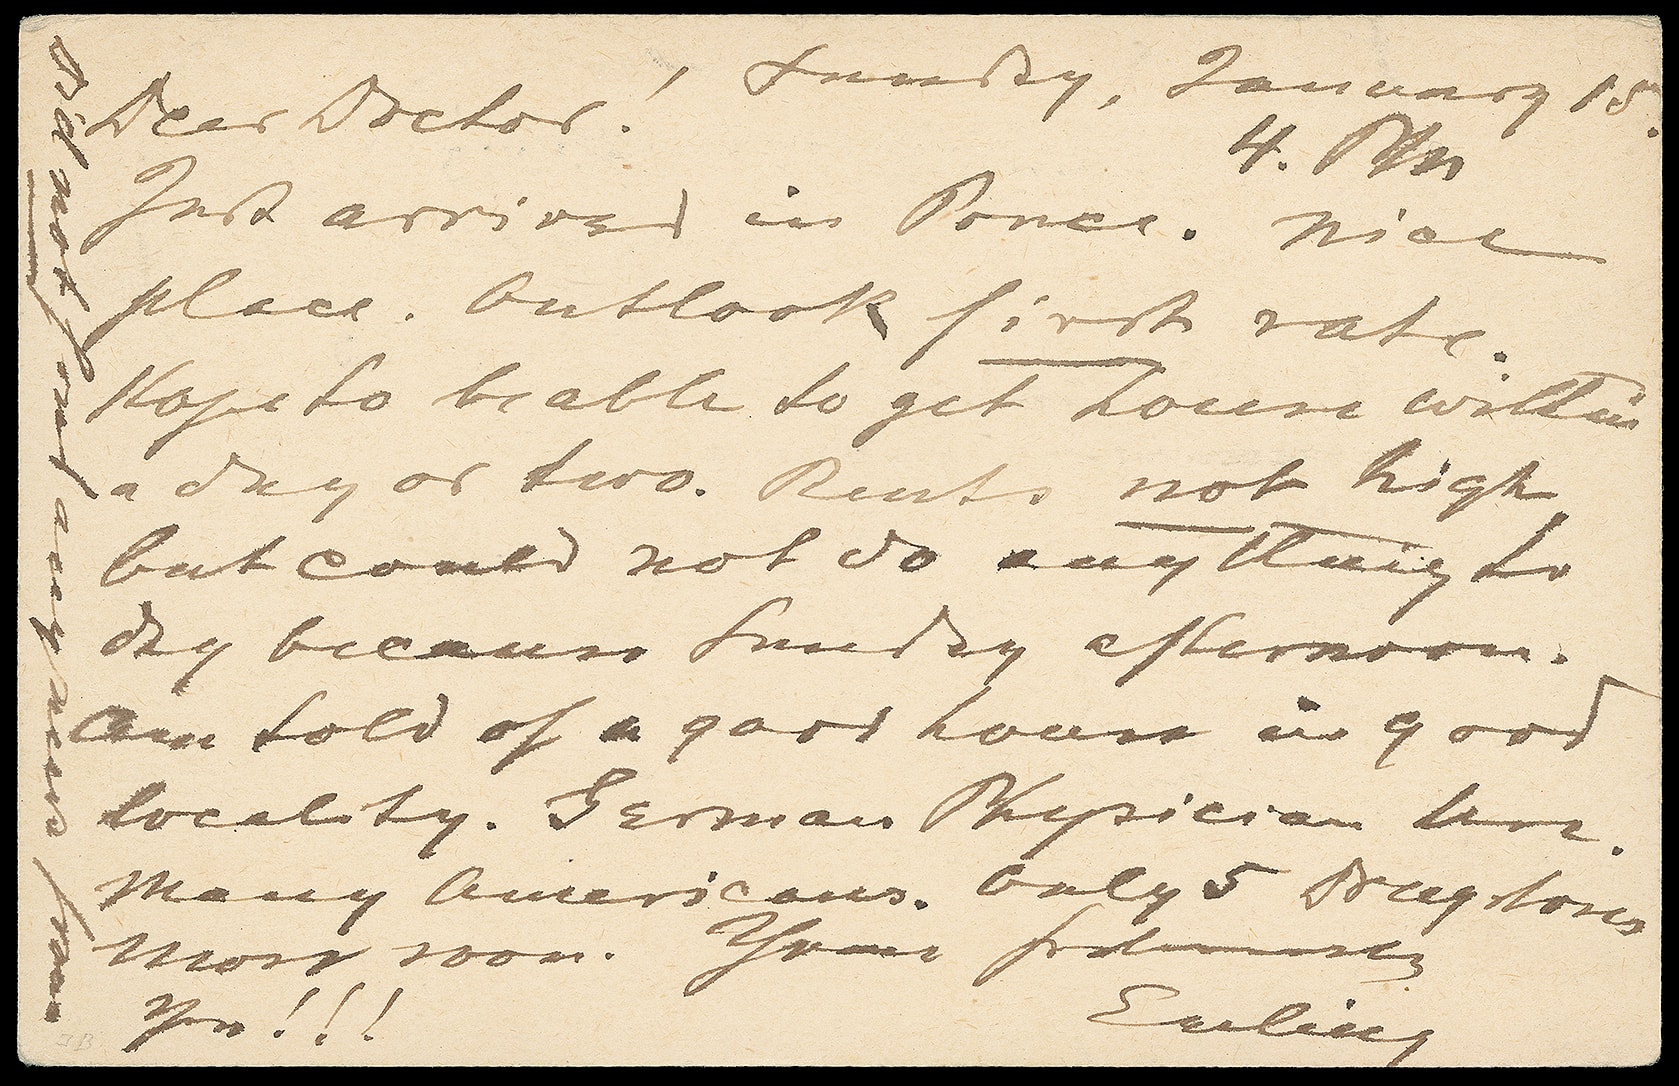 Sunday, January 15.
Dear Doctor!
4. PM
Just arrived in Ponce. Nice
place. Outlook first rate.
Hope to be able to get house within
a day or two. Rents not high
but could not do anything to
day because Sunday afternoon.
Am told of a good house in good
locality. German Physician here.
Many Americans. Only 5 Drugstores
More soon. Yours fraternally
Erling
Did not find any news from
you!!!